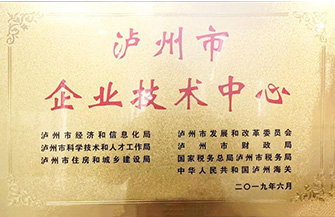 泸州市
企业技术中心
泸州市经济和信息化局
泸州市科学技术和人才工作局
泸州市住房和城乡建设局
泸州市发展和改革委员会
泸州市财政局
国家税务总局泸州市税务局
中华人民共和国泸州海关
二〇一九年六月